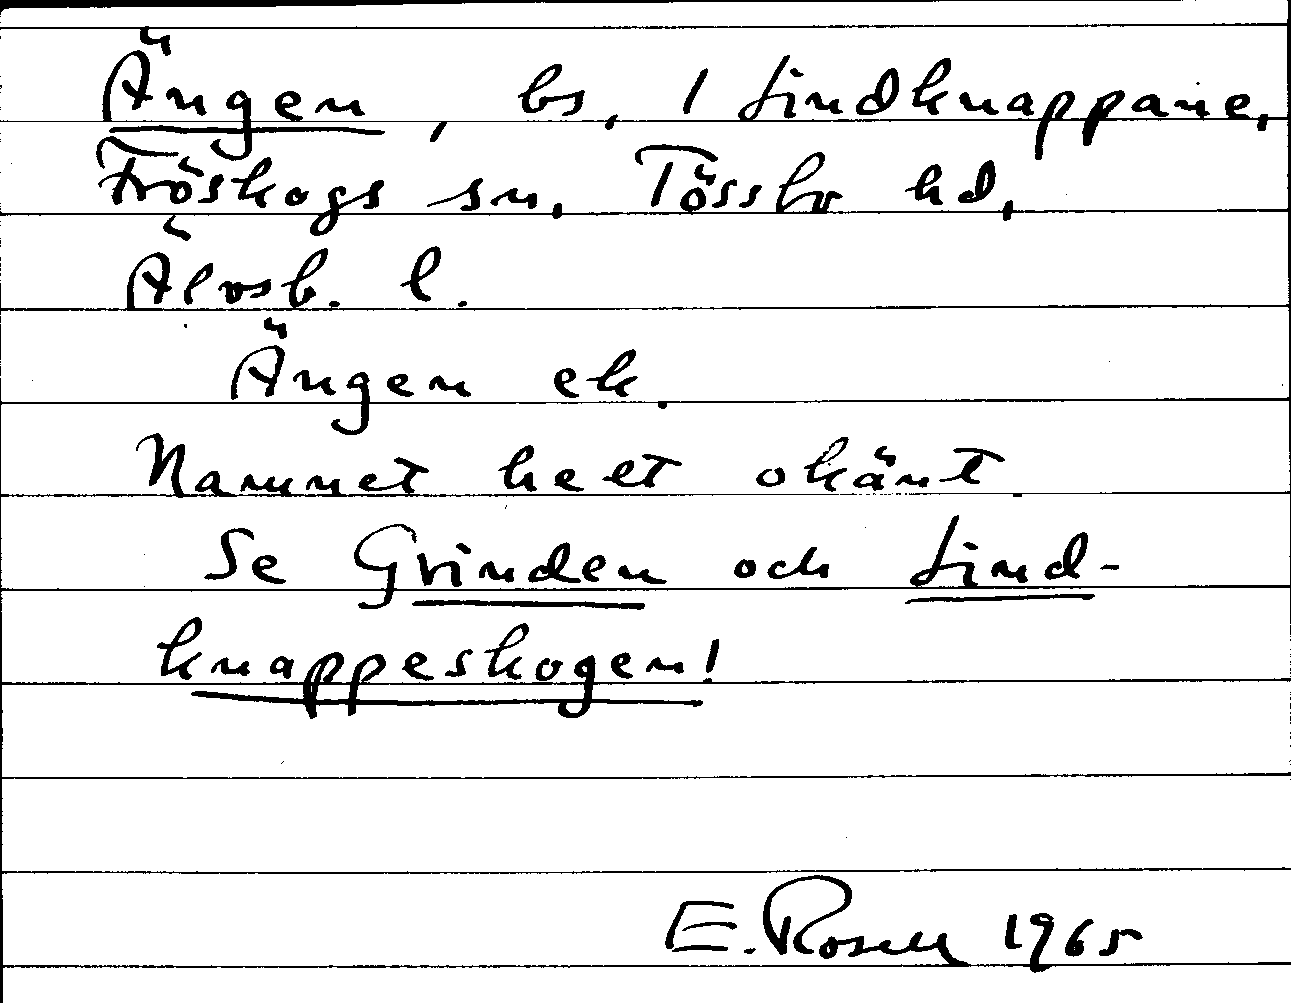 Ängen, bs, 1 Lindknappane,
Fröskogs sn, Tössbo hd,
Älvsb. l.
Ängen ek.
Namnet helt okänt.
Se Grinden och Lind-
knappeskogen!
E. Rosell 1965